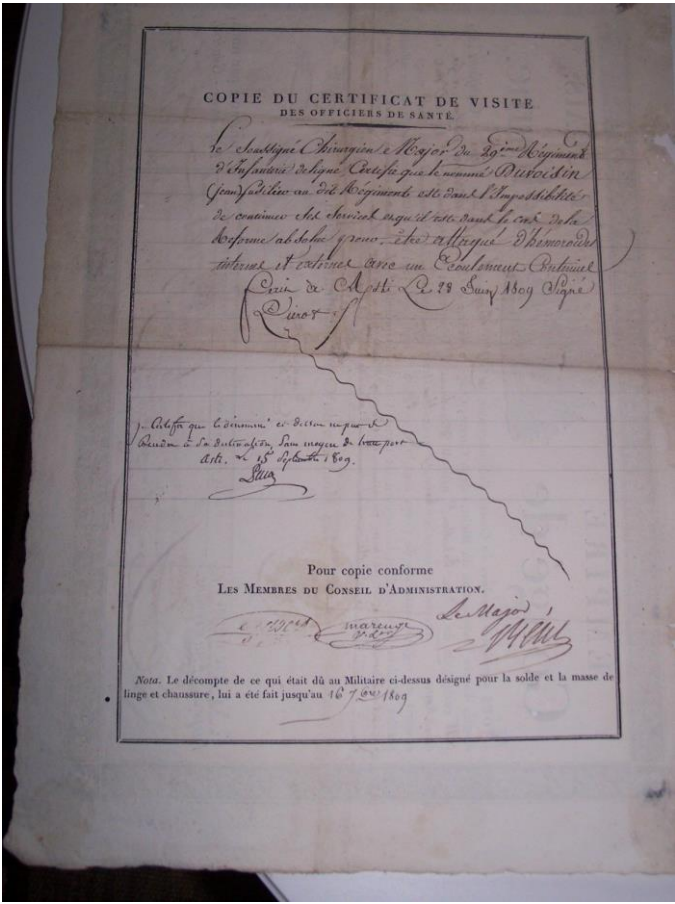 COPIE DU CERTIFICAT DE VISITE
DES OFFICIERS DE SANTÉ.
Le Soussigné Chirurgien Major du 29ème Régiment
d'Infanterie de ligne, Certifie que le nommé Duvoisin
(jean) fusilier au dit Régiment est dans l'Impossibilité
de continuer ses Services et qu'il est dans le cas de la
Reforme absolue pour être attaqué d'hémoroïdes
interne et externes avec un Ecoulement Continuel
Le 28 Juin 1809 Signé
je Certifie que le dénommé ci dessus ne peut se
Rendre à Sa destination, Sans moyen de transport
Asti. Le 15 Septembre 1809.
Pour copie conforme
LES MEMBRES DU CONSEIL D'ADMINISTRATION.
Le Major
marengo
Nota. Le décompte de ce qui était dû au Militaire ci-dessus désigné pour la solde et la masse de
linge et chaussure, lui a été fait jusqu'au 16 7bre 1809